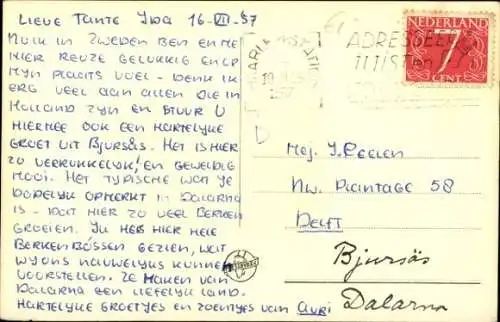 Lieve Tante Ina 16-VII-'57
Nu ik in Zweden ben en me
hier reuze gelukkig en op
mijn plaats voel - denk ik
erg veel aan allen die in
Holland zijn en stuur U
hiermee ook een hartelijke
groet uit Bjursås. Het is hier
zo verrukkelijk! en geweldig
mooi. Het typische wat je
dadelijk opmerkt in Dalarna
is - dat hier zo veel berken
groeien. Ik heb hier hele
berkenbossen gezien, wat
wij ons nauwelijks kunnen
voorstellen. Ze maken van
Dalarna een liefelijk land.
Hartelijke groetjes en zoentjes van
NEDERLAND
7
CENT
Mej. J. Reelen
Nw. Plantage 58
Delft
Bjursås
Dalarna